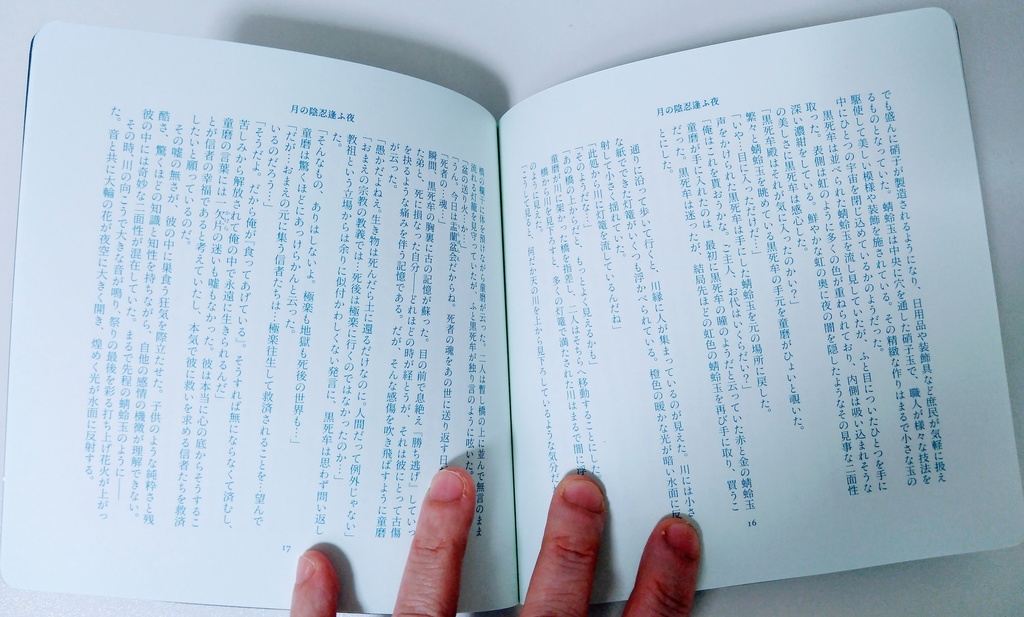 月の陰忍逢ふ夜
でも盛んに硝子が製造されるようになり、日用品や装飾具など庶民が気軽に扱え
るものとなっていた。蜻蛉玉は中央に穴を通した硝子玉で、職人が様々な技法を
駆使して美しい模様や装飾を施されている。その精緻な作りはまるで小さな玉の
中にひとつの宝を閉じ込めているかのようだった。
黒死牟は並べられた蜻蛉玉を流し見していたが、ふと目についたひとつを手に
取った。表側は虹のように多くの色が重ねられており、内側は吸い込まれそうな
深い濃紺をしている。鮮やかな虹の奥に夜の闇を隠したようなその見事な二面性
の美しさに黒死牟は感心した。
「黒死牟殿はそれが気に入ったのかい？」
繁々と蜻蛉玉を眺めている黒死牟の手元を童磨がひょいと覗いた。
「いや…目に入っただけだ…」
声をかけられた黒死牟は手にしていた蜻蛉玉を元の場所に戻した。
「俺はこれを買おうかな。ご主人、お代はいくらだい？」
童磨が手に入れたのは、最初に黒死牟の瞳のようだと云っていた赤と金の蜻蛉玉
だった。黒死牟は迷ったが、結局先ほどの虹色の蜻蛉玉を再び手に取り、買うこ
とにした。
通りに沿って歩いて行くと、川縁に人が集まっているのが見えた。川には小さ
な紙でできた灯籠が、いくつも浮かべられている。橙色の暖かな光が暗い水面に反
射して小さく揺れていた。
「此処から川に灯籠を流しているんだね」
「そのようだな…」
「あの橋の上からだと、もっとよく見えるかも」
童磨が川に架かった橋を指差し、二人はそちらへ移動することにした
橋から川を見下ろすと、多くの灯籠で満たされた川はまるで闇に
のように見えた。
「こうして見ると、何だか天の川を上から見下ろしているような気分だ
16
月の陰忍逢ふ夜
橋の欄干に体を預けながら童磨が云った。二人は暫し橋の上に並んで無言のまま
流れる灯籠を見送っていたが、ふと黒死牟が独り言のように呟いた。
「盆の送り火か…」
「うん。今日は盂蘭盆会だからね。死者の魂をあの世に送り返す日
「死者の…魂…」
瞬間、黒死牟の胸裏に古の記憶が蘇った。目の前で息絶え『勝ち逃げ』していっ
た弟。死に損なった自分――どれほどの時が経とうが、それは彼にとって古傷
を抉るような痛みを伴う記憶である。だが、そんな感傷を吹き飛ばすように童磨
が云った。
「愚かだよねえ。生き物は死んだら土に還るだけなのに、人間だって例外じゃない」
「おまえの宗教の教義では…死後は極楽に行くのではなかったのか…」
教祖という立場からは余りに似付かわしくない発言に、黒死牟は思わず問い返し
た。
「そんなもの、ありはしないよ。極楽も地獄も死後の世界も…」
童磨は驚くほどにあっけらかんと云った。
「だが…おまえの元に集う信者たちは…極楽往生して救済されることを…望んで
いるのだろう…」
「そうだよ。だから俺が『食ってあげている』。そうすれば無にならなくて済むし、
苦しみから解放されて俺の中で永遠に生きられるんだ」
童磨の言葉には一欠片の迷いも嘘もなかった。彼は本当に心の底からそうするこ
とが信者の幸福であると考えていたし、本気で彼に救いを求める信者たちを救済
したいと願っているのだ。
その嘘の無さが、彼の中に巣食う狂気を際立たせた。子供のような純粋さと残
酷さ、驚くほどの知識と知性を持ちながら、自他の感情の機微が理解できない。
彼の中には奇妙な二面性が混在していた。まるで先程の蜻蛉玉のように――
その時、川の向こうで大きな音が鳴り、祭りの最後を彩る打ち上げ花火が上がっ
た。音と共に大輪の花が夜空に大きく開き、煌めく光が水面に反射する。
17